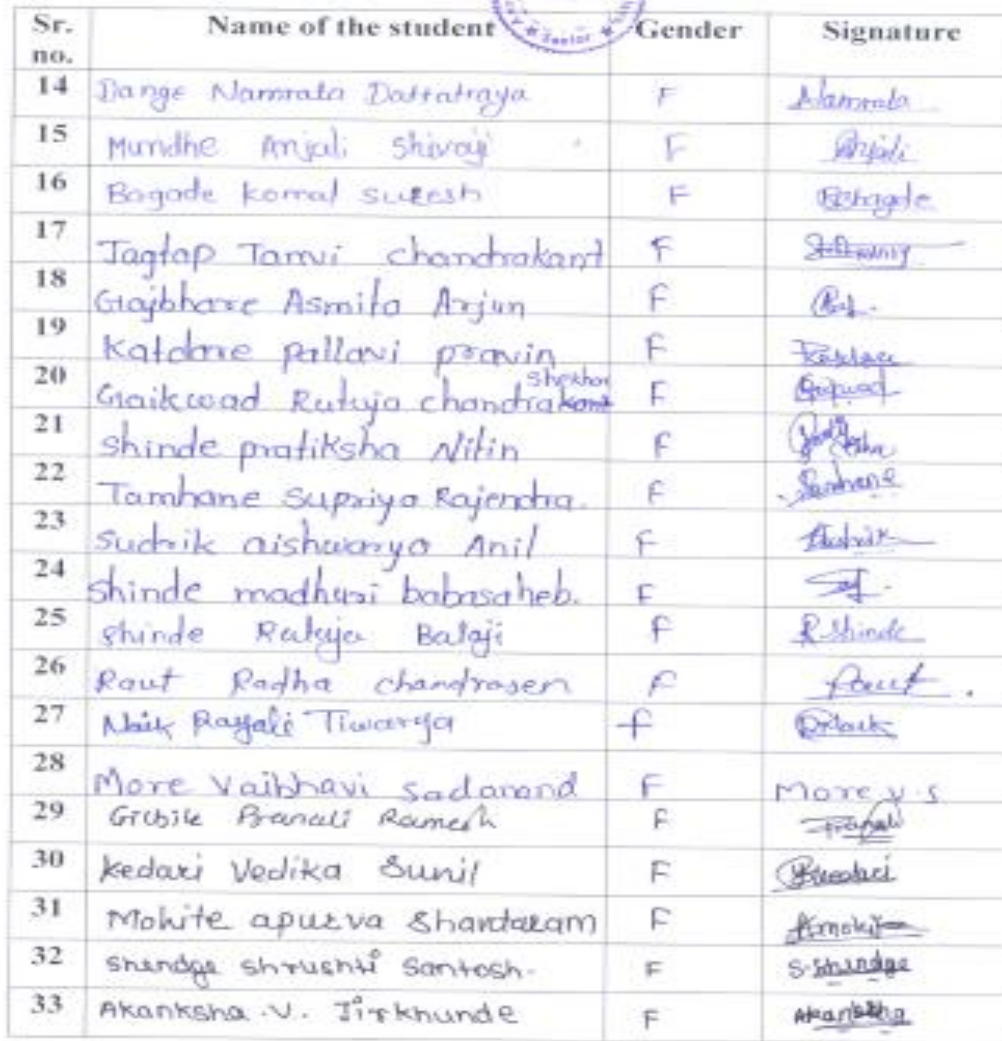 Sr. no. Name of the student Gender Signature
Junior
14 Dange Namrata Dattatraya F Namrata
15 Mundhe Anjali Shivaji F Anjali
16 Bagade Komal Suresh F
17 Jagtap Tanvi chandrakant F
18 Gajbhare Asmita Arjun F
19 Katdare pallavi pravin F
shekhar
20 Gaikwad Rutuja chandrakant F
21 Shinde pratiksha Nitin F
22 Tamhane Supriya Rajendra. F Tamhane
23 Sudrik aishwarya Anil F
24 Shinde madhuri babasaheb. F
25 Shinde Rutuja Balaji F R. Shinde
26 Raut Radha chandrasen F Raut
27 Naik Rayali Tiwarya F
28 More Vaibhavi Sadanand F More v.s
29 Pranali Ramesh F Pranali
30 Kedari Vedika Sunil F
31 Mohite apurva Shantaram F
32 Shendge Shrushti Santosh. F S. Shendge
33 Akanksha .V. Jirkhunde F Akanksha